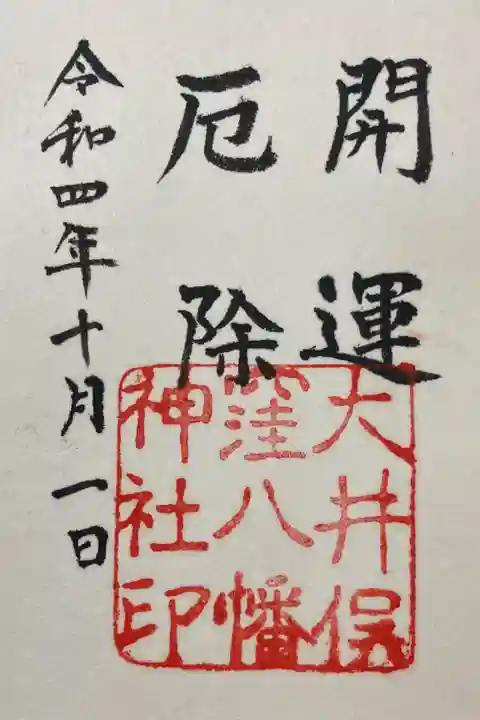 開運
厄除
令和四年十月一日
大井俣
窪八幡
神社印